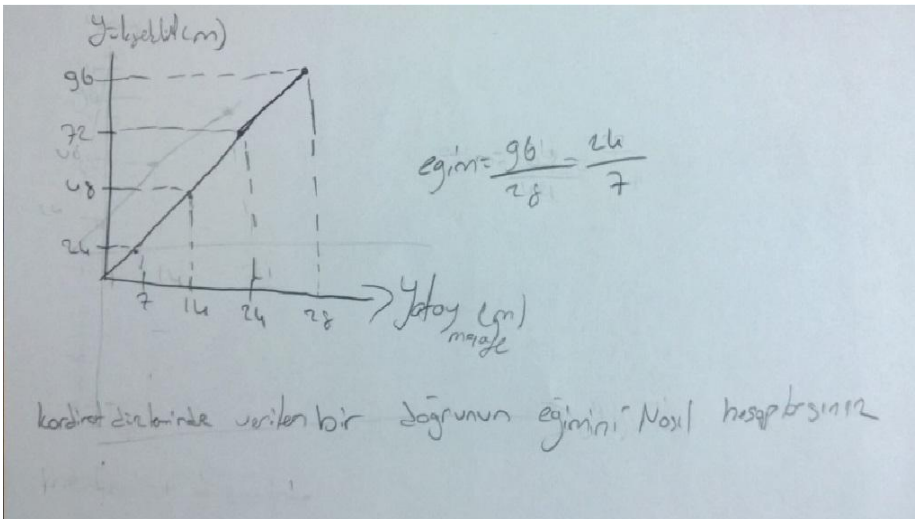 Yükseklik(m)
96
72
48
24
7 14 24 28
Yatay (m)
mesafe
eğim= 96/28 = 24/7
kordinat düzleminde verilen bir doğrunun eğimini Nasıl hesaplarsınız